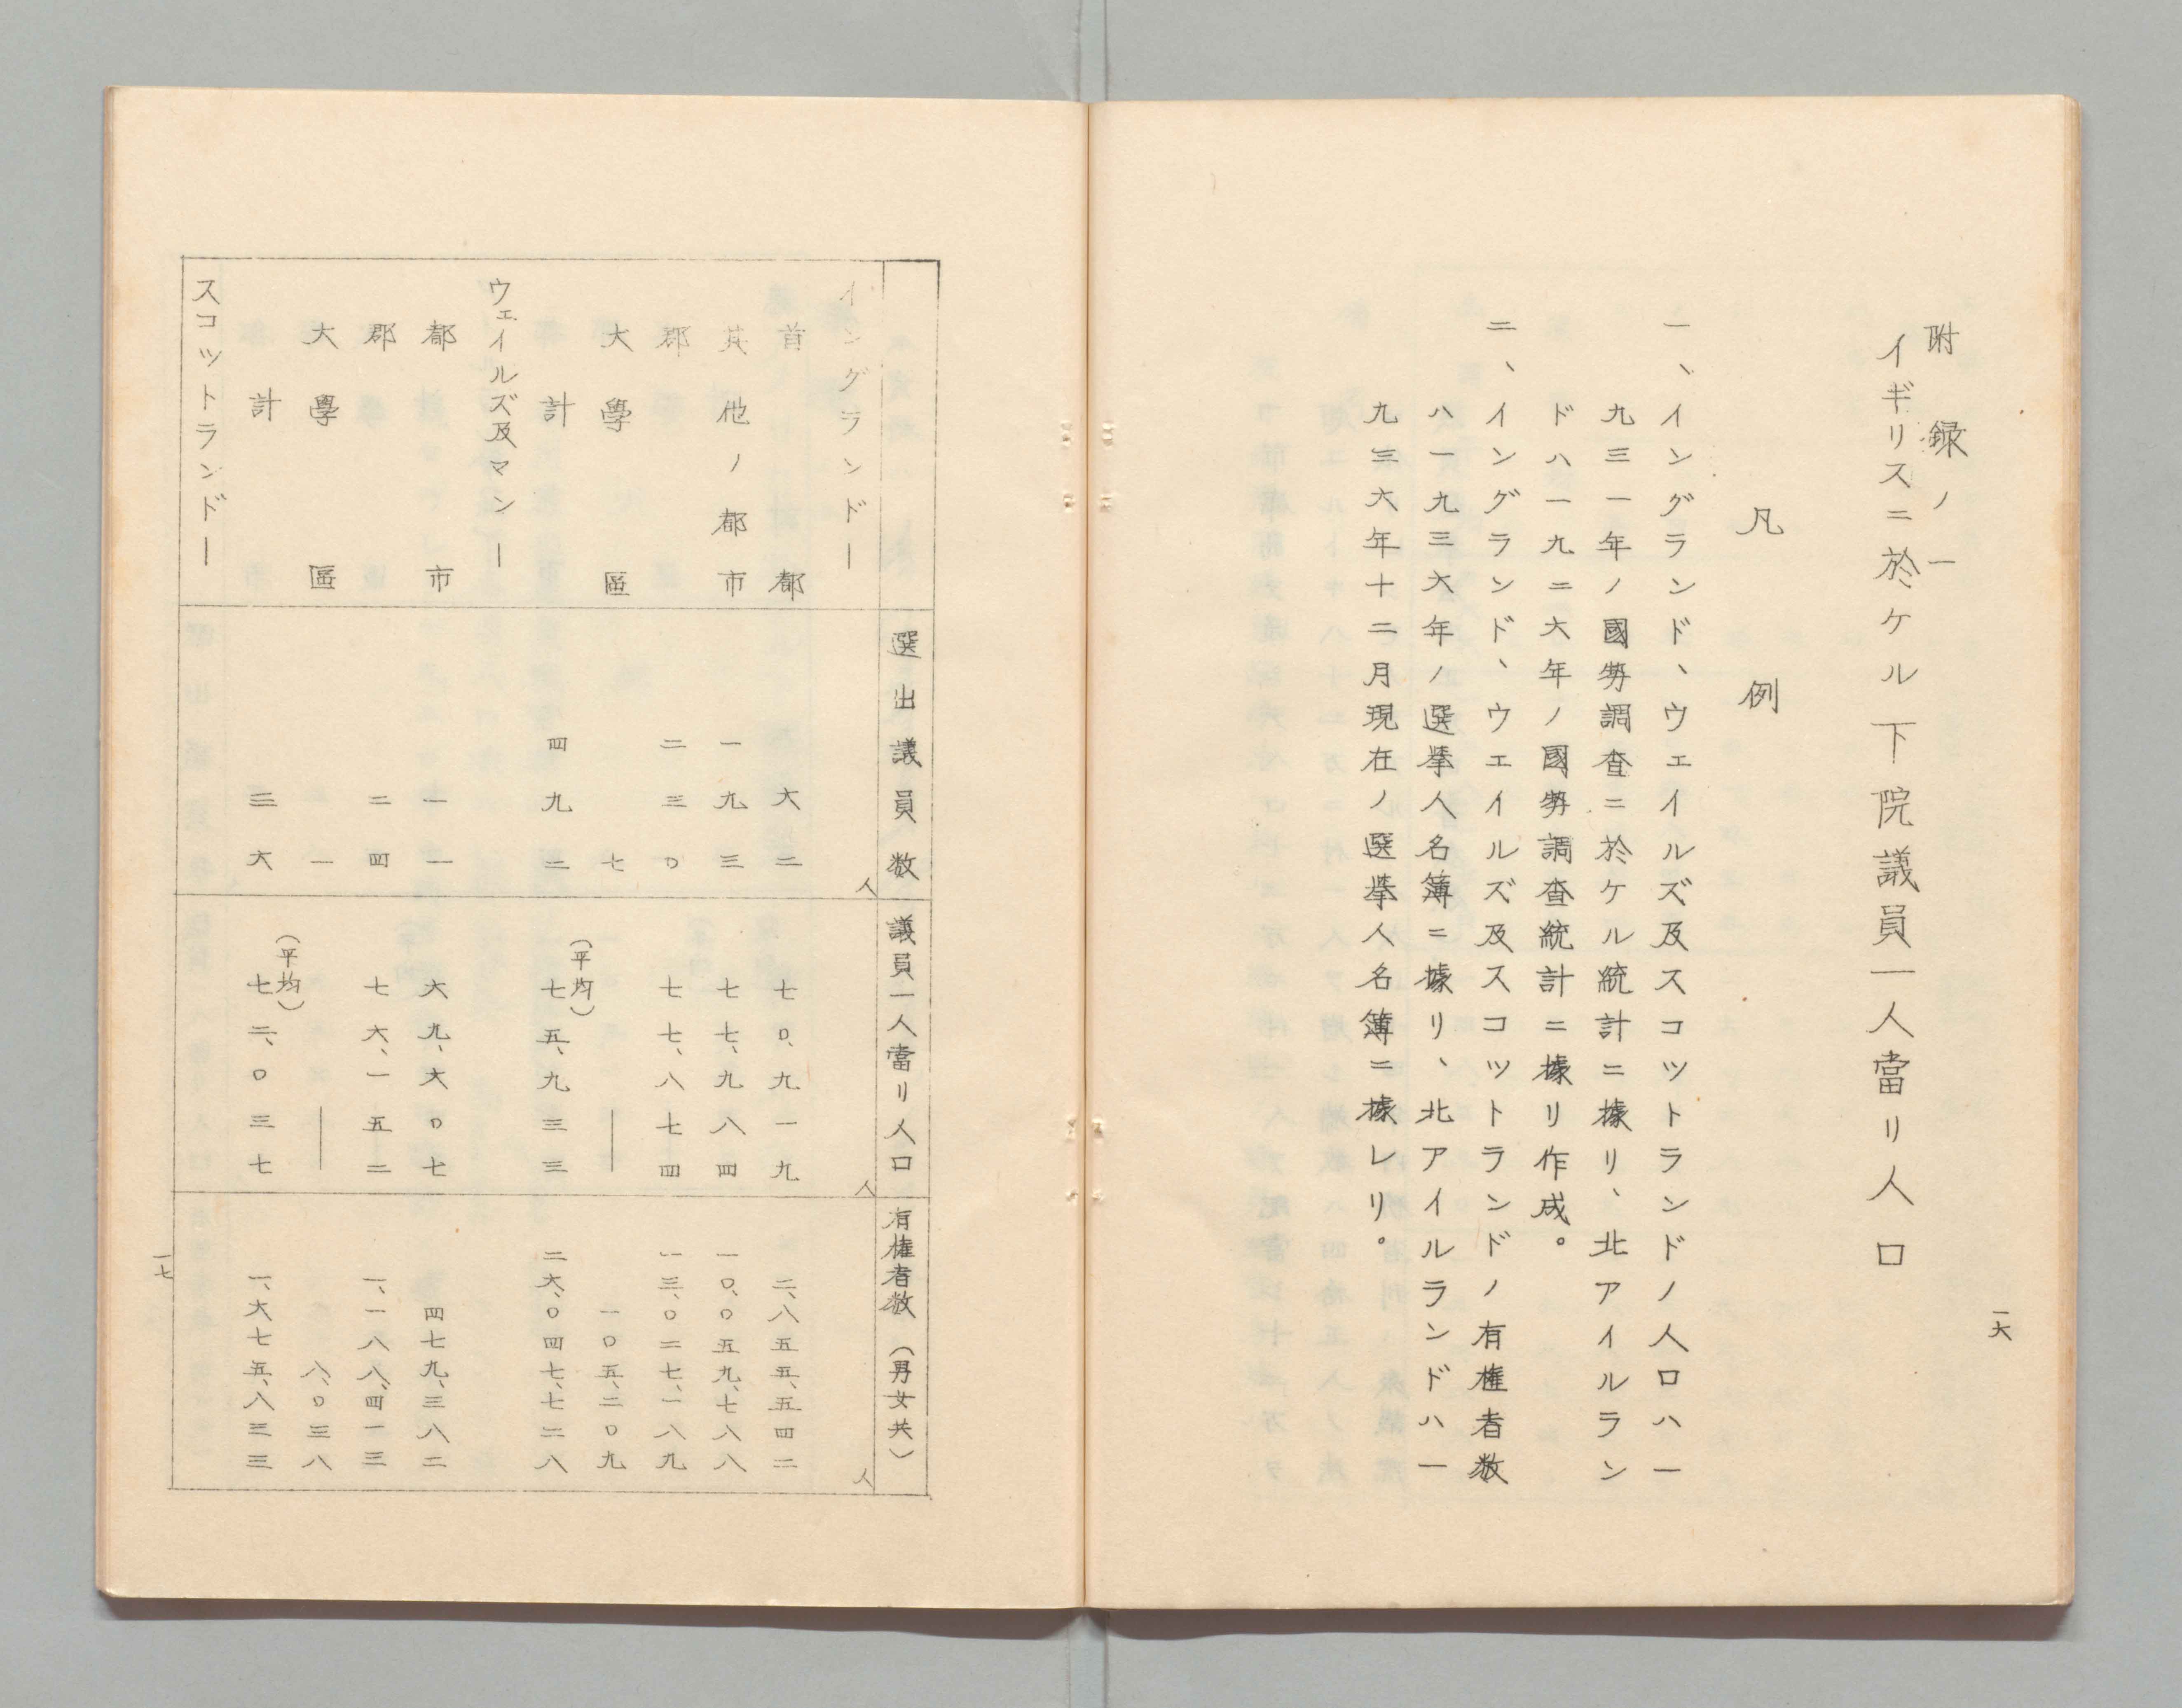 附録ノ一
イギリスニ於ケル下院議員一人當リ人口
凡例
一、イングランド、ウェイルズ及スコツトランドノ人口ハ一
九三一年ノ國勢調査ニ於ケル統計ニ據リ、北アイルラン
ドハ一九二六年ノ國勢調査統計ニ據リ作成。
二、イングランド、ウェイルズ及スコットランドノ有権者数
ハ一九三六年ノ選挙人名簿ニ據リ、北アイルランドハ一
九三六年十二月現在ノ選挙人名簿ニ據レリ。
一六
選出議員数
議員一人當リ人口
有権者数（男女共）
イングランド―
人
人
人
首都 六二 七〇、九一九 二、八五五、五四二
其他ノ都市 一九三 七七、九八四 一〇、〇五九、七八八
郡 二三〇 七七、八七四 一三、〇二七、一八九
大學區 七 ― 一〇五、二〇九
計 四九二 （平均）七五、九三三 二六、〇四七、七二八
ウェイルズ及マン―
都市 一一 六九、六〇七 四七九、三八二
郡 二四 七六、一五二 一、一八八、四一三
大學區 一 ― 八、〇三八
計 三六 （平均）七二、〇三七 一、六七五、八三三
スコットランド―
一七